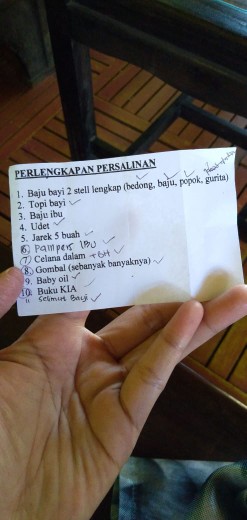 PERLENGKAPAN PERSALINAN
1. Baju bayi 2 stell lengkap (bedong, baju, popok, gurita)
2. Topi bayi
3. Baju ibu
4. Udet
5. Jarek 5 buah
6. Pampers IBU
7. Celana dalam
8. Gombal (sebanyak banyaknya)
9. Baby oil
10. Buku KIA
11 Selimut Bayi